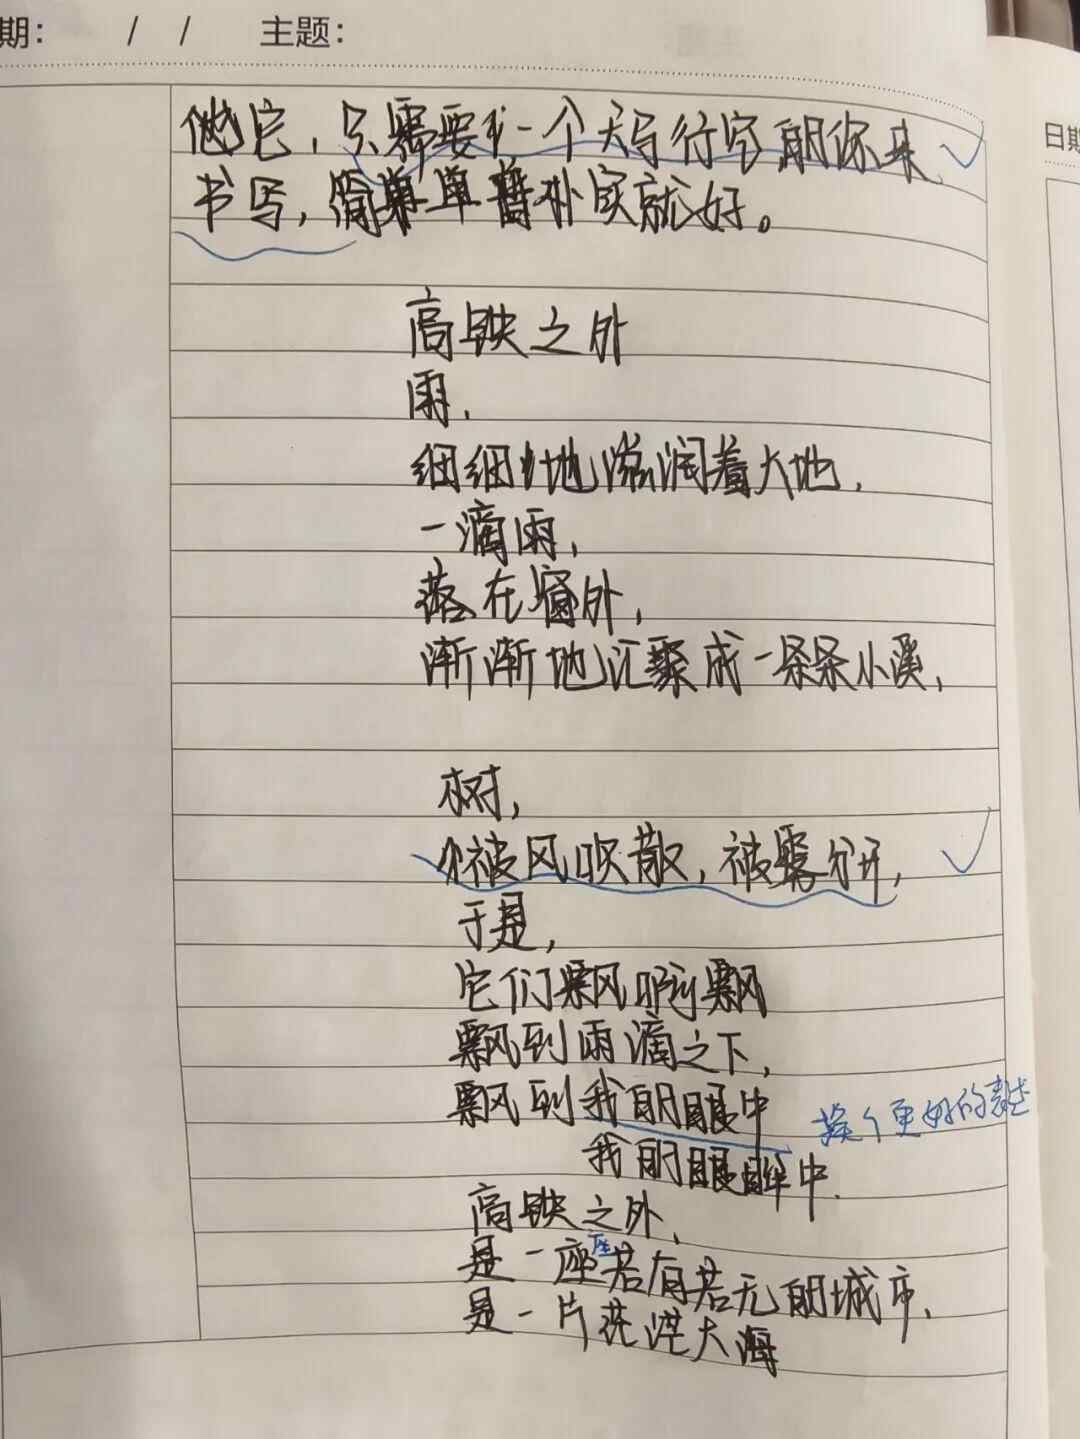 期： / / 主题：
日期
他它，只需要一个天马行空的你来
书写，简单普朴实就好。
高铁之外
雨，
细细地滋润着大地，
一滴雨，
落在窗外，
渐渐地汇聚成一条条小溪，
树，
被风吹散，被雾分开，
于是，
它们飘啊飘
飘到雨滴之下，
飘到我的眼中
换个更好的表述
我的眼眸中．
高铁之外，
座
是一座若有若无的城市，
是一片茫茫大海